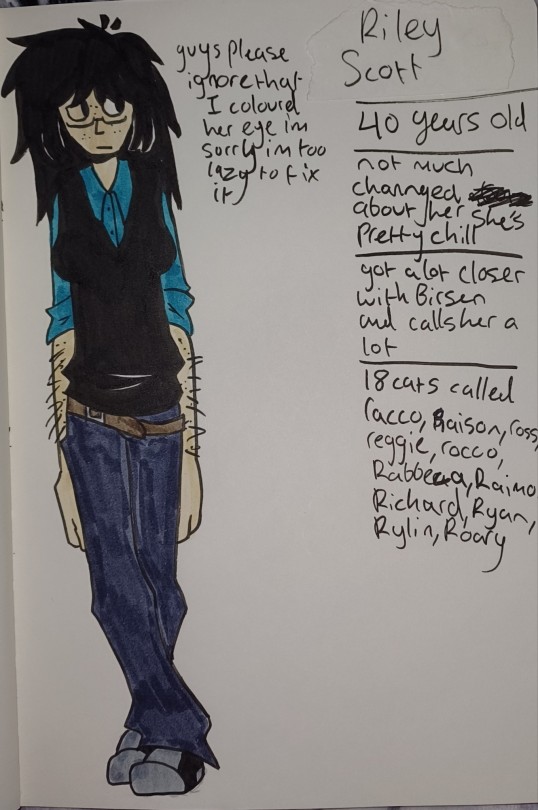 guys please
ignore that
I coloured
her eye im
sorry im too
lazy to fix
it
Riley
Scott
40 years old
not much
changed
about her she's
pretty chill
got a lot closer
with Birsen
and calls her a
lot
18 cats called
racco, Raison, ross,
reggie, rocco,
Rabbecca, Raimo
Richard, Ryan,
Rylin, Roary